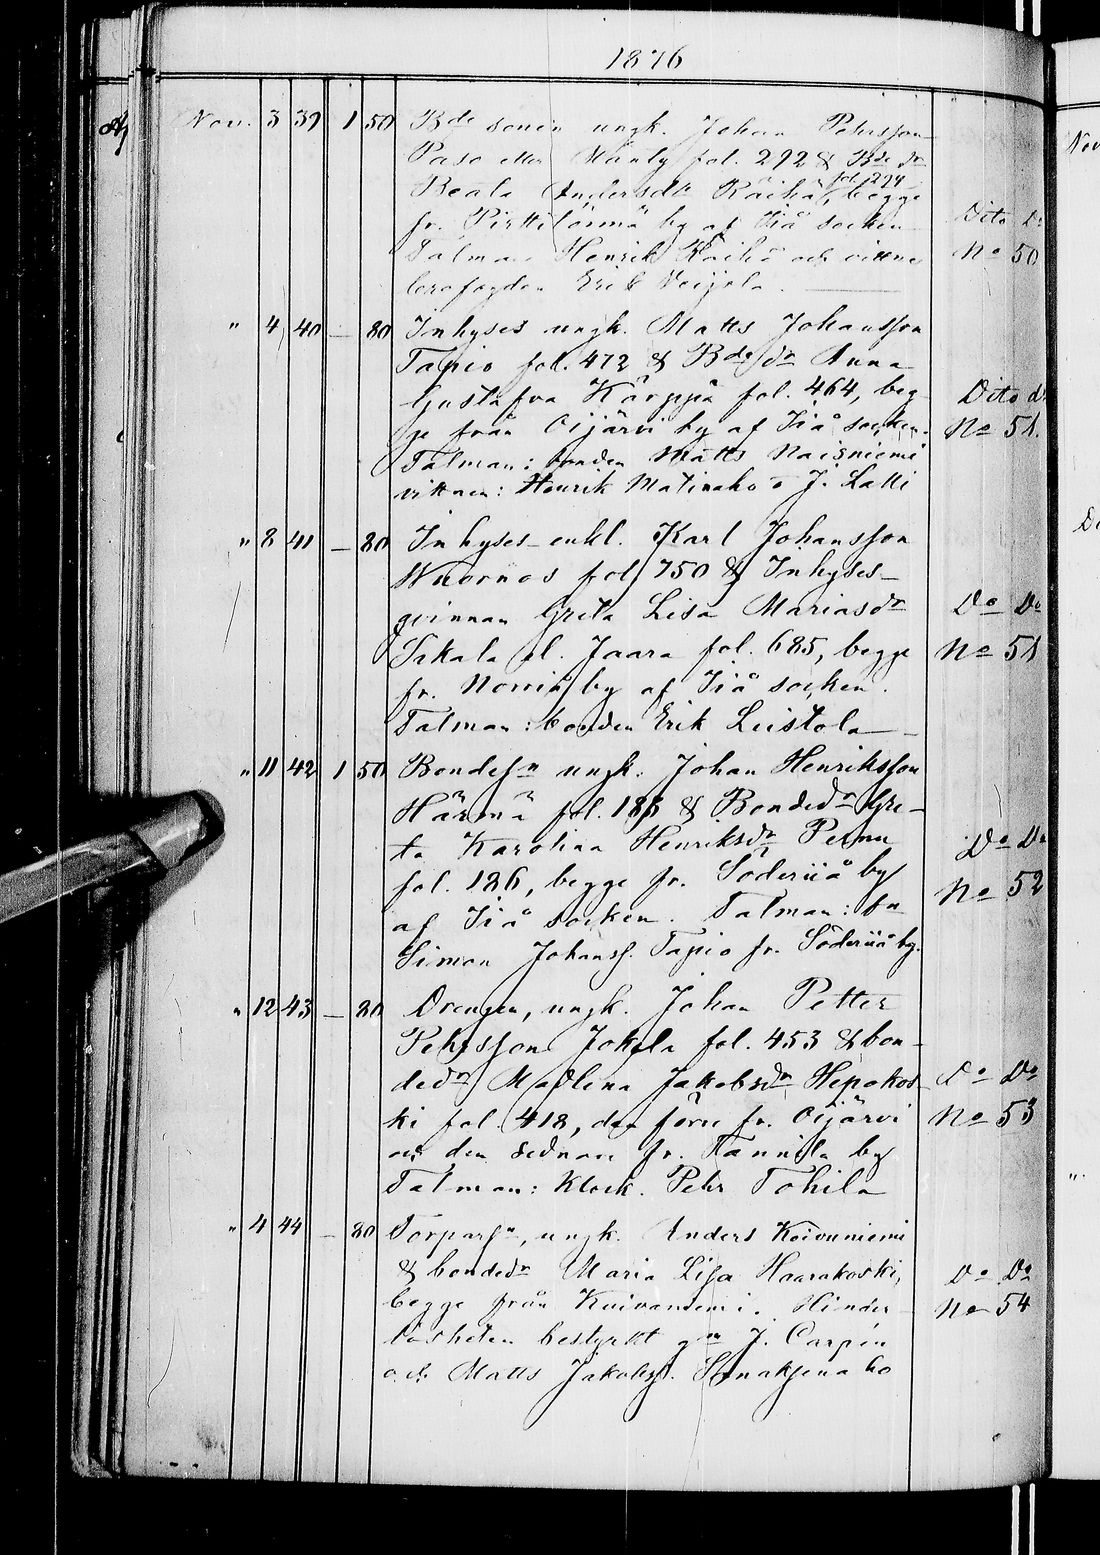 1876
Nov. 3 39 1 50 Bde sonen ungk. Johan Petersson
Paso eller Mänty fol. 292 & Bde dr
fol. 294
Beata Andersdr Räihä, begge
fr. Pirttitörmä by af Iiå socken
Dito Do
Talman Henrik Räihä och vittne
No 50
Erik Veijola.
" 4 40 — 80 Inhyses ungk. Matts Johansson
Tapio fol. 472 & Bde dr Anna
Gustafva Kärppä fol. 464, beg-
Dito do
ge från Oijärvi by af Iiå socken.
No 51.
Talman: bonden Matts Naisniemi
vittnen: Henrik Matinaho o J. Latti
" 8 41 — 80 Inhyses enkl. Karl Johansson
Wuornos fol. 750 & Inhyses-
qvinnan Greta Lisa Mariasdr
Do Do
Sikala l. Jaara fol. 685, begge
No 51
fr. Norriå by af Iiå socken.
Talman: bonden Erik Leistola
" 11 42 1 50 Bondesn ungk. Johan Henriksson
Härmä fol. 186 & Bondedr Gre-
ta Karolina Henriksdr Pernu
Do Do
fol. 186, begge fr. Söderiiå by
No 52
af Iiå socken. Talman: bn
Simon Johanss. Tapio fr. Söderiiå by.
" 12 43 — 80 Drengen, ungk. Johan Petter
Pehrsson Jokela fol. 453 & bon-
dedr Madlena Jakobsdr Hepokos-
Do Do
ki fol. 418, den förre fr. Oijärvi
No 53
och den sednare fr. Tannila by
Talman: Klock. Pehr Tohila
" 4 44 — 80 Torparsn, ungk. Anders Koivuniemi
& bondedr Maria Lisa Haarakoski,
Do Do
begge från Kuivaniemi. Hinder-
No 54
lösheten bestyrkt gm J. Carpén
och Matts Jakobss.